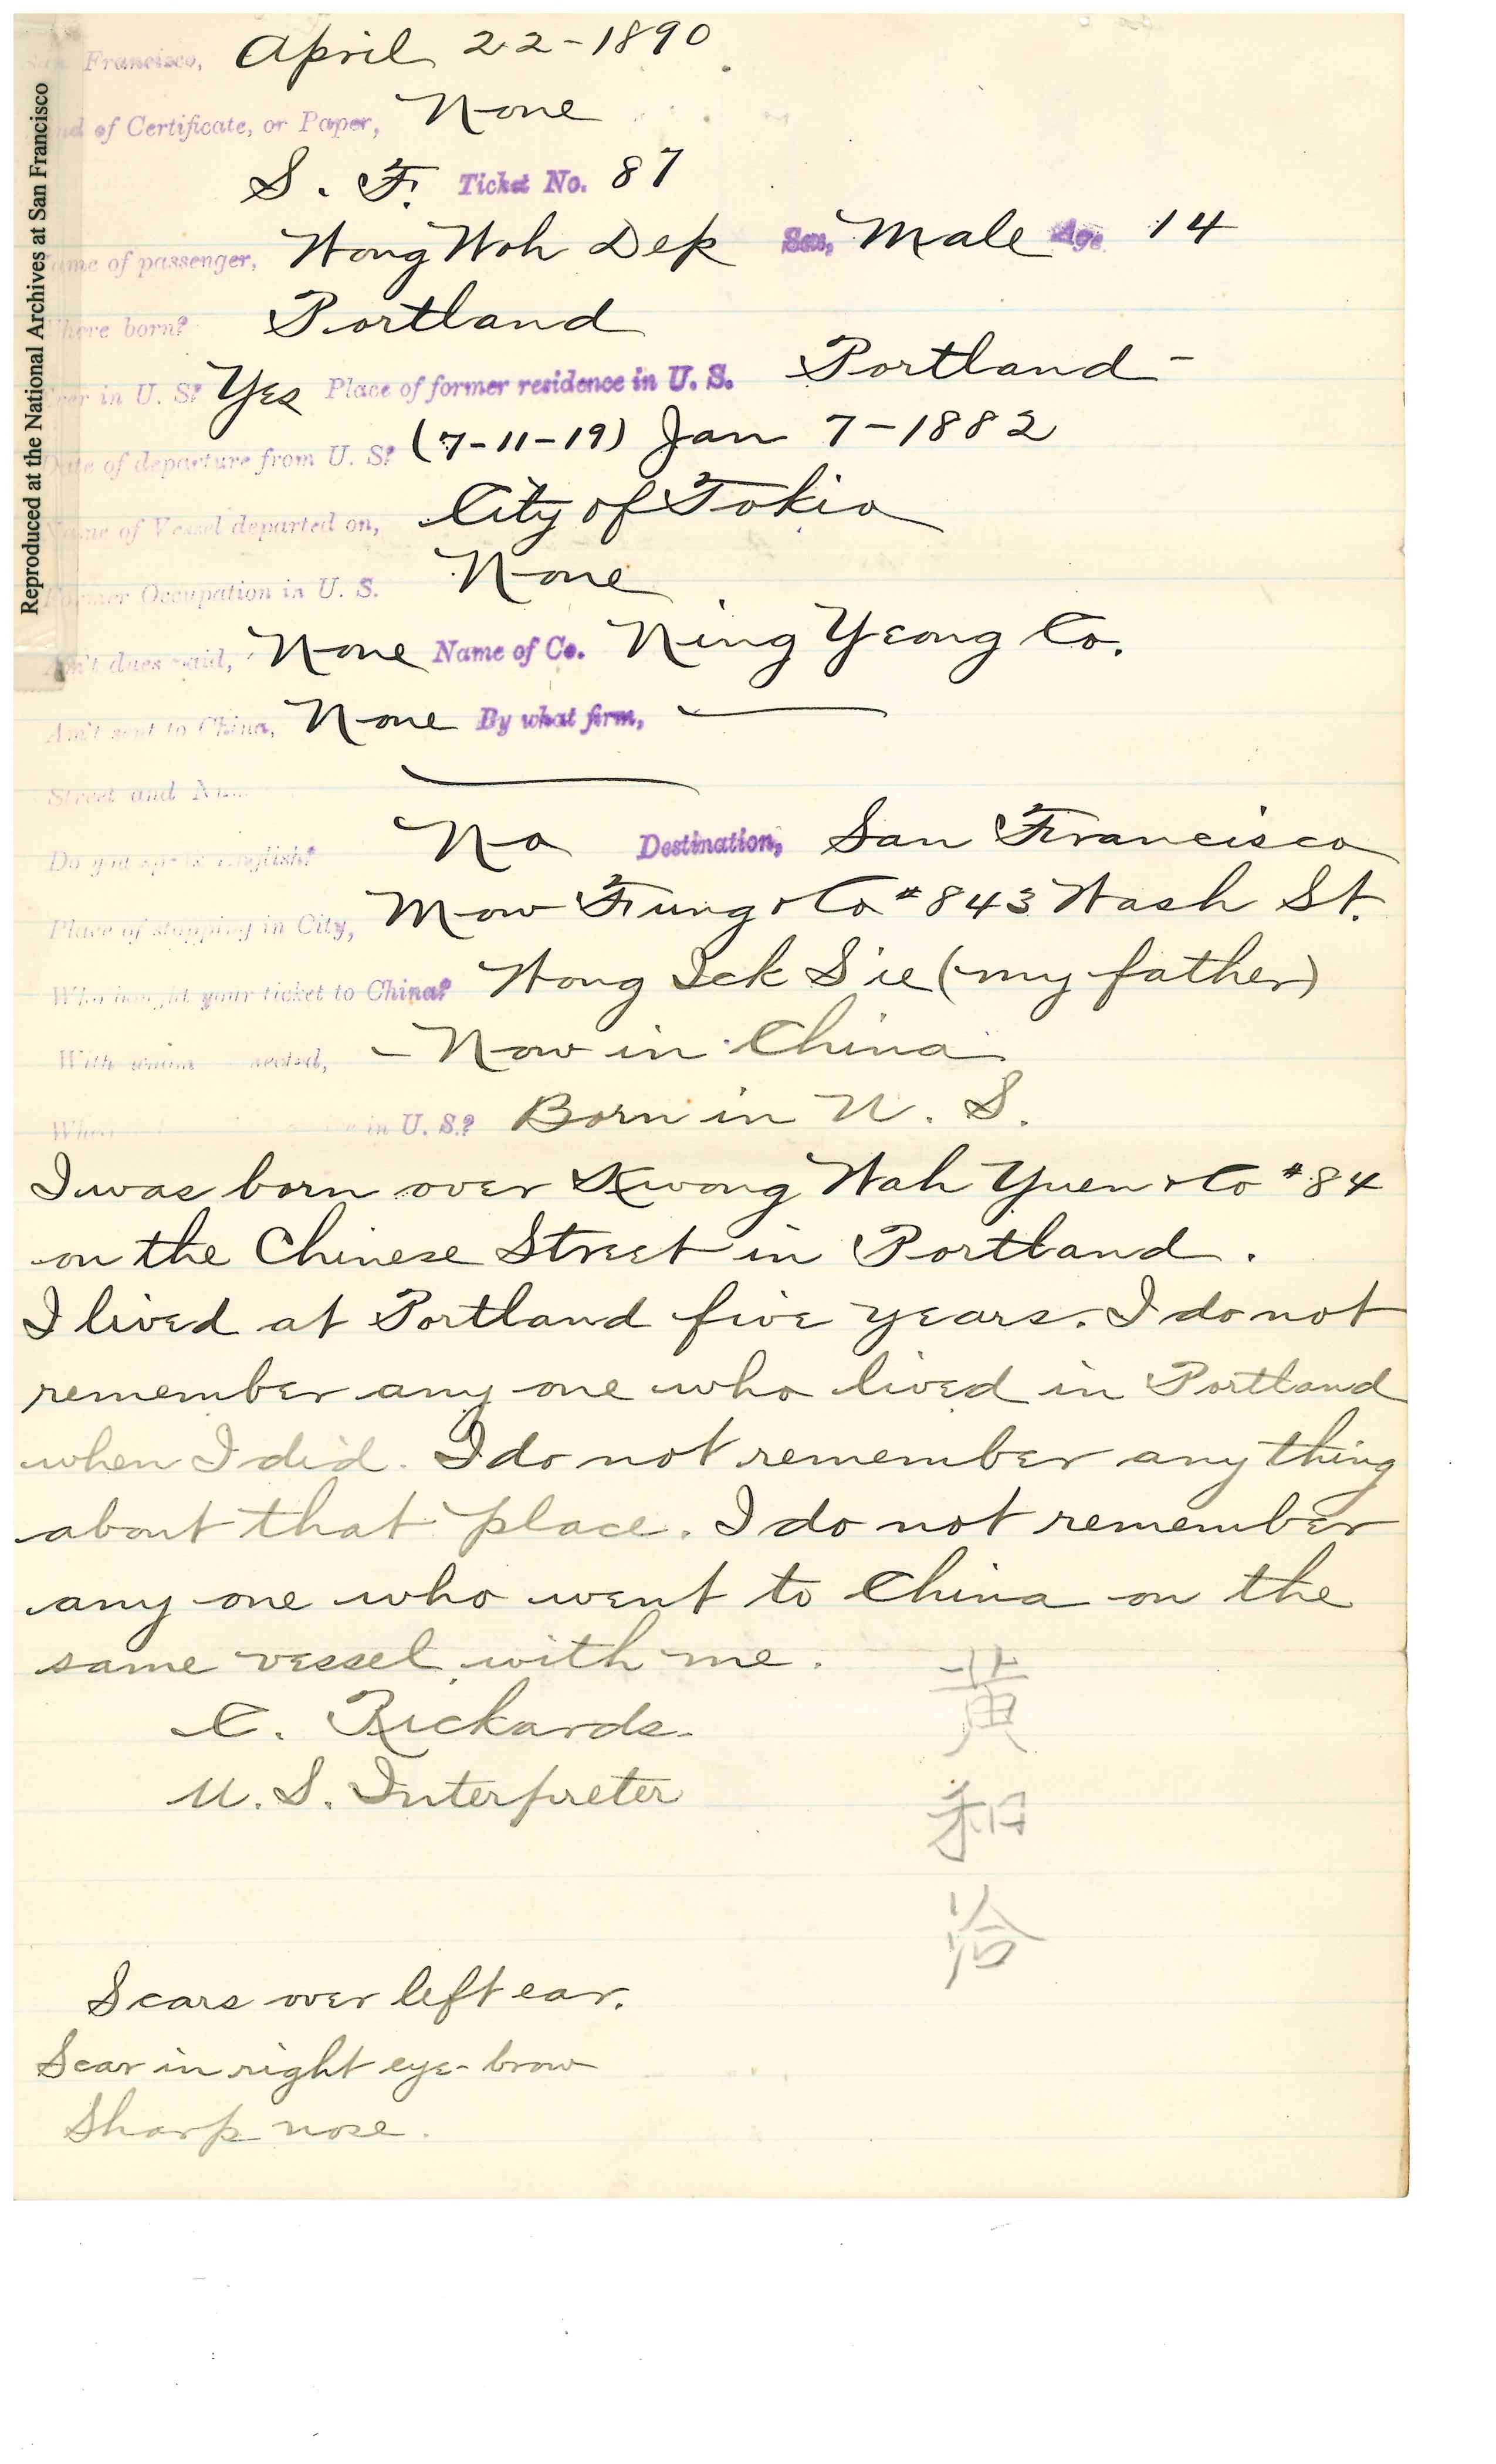 Francisco, April 22-1890
of Certificate, or Paper, None
S. F. Ticket No. 87
me of passenger, Wong Woh Dep Sex, Male Age 14
here born? Portland
er in U. S.? Yes Place of former residence in U. S. Portland -
Date of departure from U. S.? (7-11-19) Jan 7-1882
Name of Vessel departed on, City of Tokio
Former Occupation in U. S. None
Am't dues paid, None Name of Co. Ning Yeong Co.
Am't sent to China, None By what firm, —
Street and —
Do you speak English? No Destination, San Francisco
Place of stopping in City, Mow Fung & Co #843 Wash St.
Who bought your ticket to China? Wong Ick Sie (my father)
With - Now in China
When in U. S.? Born in U. S.
I was born over Kwong Wah Yuen & Co #84
on the Chinese Street in Portland.
I lived at Portland five years. I do not
remember any one who lived in Portland
when I did. I do not remember any thing
about that place. I do not remember
any one who went to China on the
same vessel with me.
C. Rickards
U. S. Interpreter
黃
和
洽
Scars over left ear.
Scar in right eye-brow
Sharp nose.
Reproduced at the National Archives at San Francisco